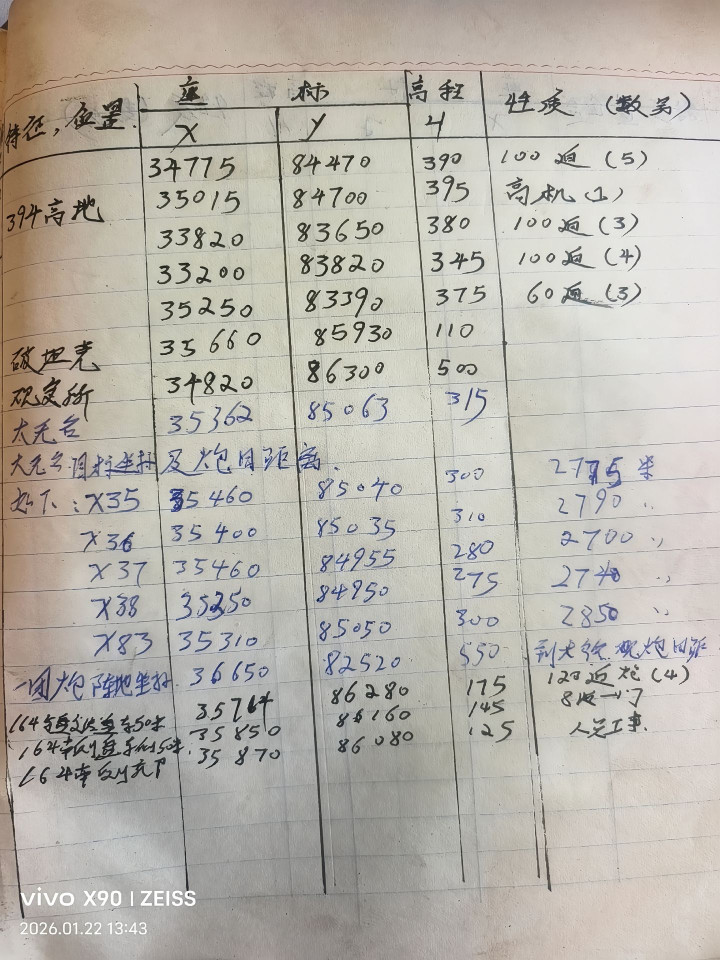 座 标 高程
特征,位置. 性质 (数量)
X y H
34775 84470 390 100迫 (5)
394高地 35015 84700 395 高机 (1)
33820 83650 380 100迫 (3)
33200 83820 345 100迫 (4)
35250 83390 375 60迫 (3)
破坦克 35660 85930 110
观察所 34820 86300 500
大无名 35362 85063 315
大无名目标坐标及炮目距离.
如下: X35 35460 85040 300 2775米
X36 35400 85035 310 2790 〃
X37 35460 84955 280 2700 〃
X38 35350 84950 275 2740 〃
X83 35310 85050 300 2850 〃
一团炮阵地坐标. 36650 82520 550 炮目距
35764 86280 175 120迫炮 (4)
35850 86160 145
35870 86080 125 人员工事.
vivo X90 | ZEISS
2026.01.22 13:43